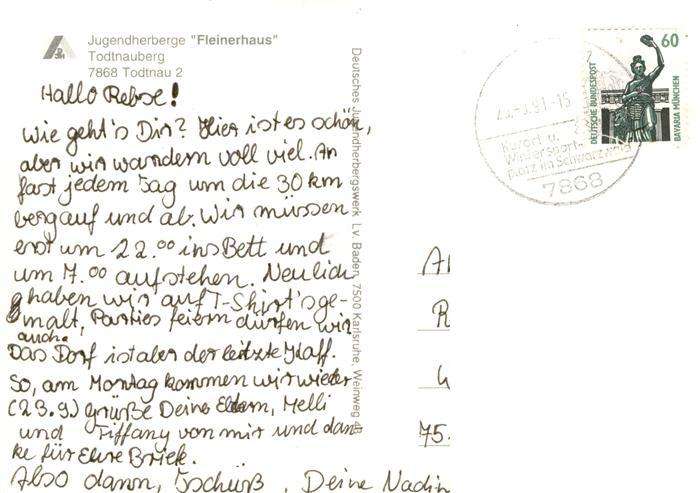 Jugendherberge "Fleinerhaus"
Todtnauberg
7868 Todtnau 2
Hallo Rebse!
wie geht's Dir? Hier ist es schön,
aber wir wandern voll viel. An
fast jedem Tag um die 30 km
bergauf und ab. Wir müssen
erst um 22.00 ins Bett und
um 7.00 aufstehen. Neulich
haben wir auf T-Shirt's ge-
malt, Parties feiern dürfen wir
auch.
Das Dorf ist aber der letzte Kaff.
So, am Montag kommen wir wieder
(23.9) grüße Deine Eltern, Melli
und Tiffany von mir und dan
ke für Eure Brief.
Also dann, Tschüß, Deine Nadin
Deutsches Jugendherbergswerk Lv. Baden, 7500 Karlsruhe, Weinweg 43
60
DEUTSCHE BUNDESPOST
BAVARIA MÜNCHEN
.91.-15
Kurort u.
Wintersport-
platz im Schwarzwald
7868
Al
R
75.